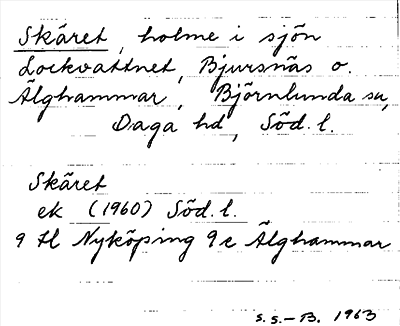 Skäret, holme i sjön
Lockvattnet, Bjursnäs o.
Älghammar, Björnlunda sn,
Daga hd, Söd. l.
Skäret
ek (1960) Söd. l.
9 H Nyköping 9 e Älghammar
S. S. – B. 1963